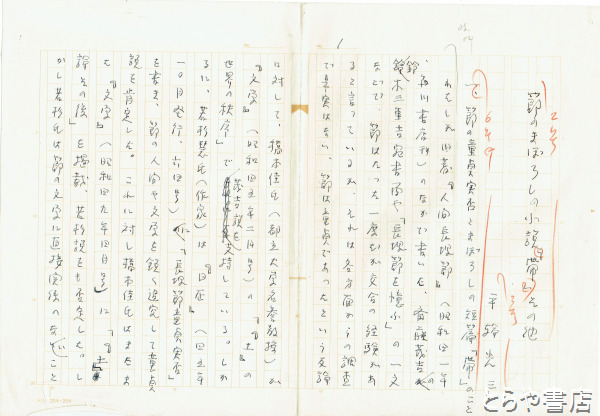 節のまぼろしの小説「帯」その他
平輪光三
節の童貞実否とまぼろしの短篇「帯」のこと
わたしが旧著『人間長塚節』(昭和二一年
書房)のなかで書いた、斎藤茂吉の
鈴木三重吉宛書面や「長塚節を憶ふ」の一文
などで、節はたった一度だが交合の経験があ
ると言っているが、それは各方面からの調査
で事実ではない、節は童貞であったという反論
に対して、橋本佳氏(都立大学名誉教授)が
『文学』(昭和四五年二月号)の「『土』の
世界の秩序」で茂吉説を支持している。しか
るに、若杉慧氏(作家)は『日在』(四五年
一〇月発行、六四号)に「長塚節童貞実否」
を書き、節の人間や文学を鋭く追究して童貞
説を肯定した。これに対し橋本佳氏はまたま
た『文学』(昭和四九年四月号)に「『土』
論その後」を掲載、若杉説をも否定した。し
かし若杉氏は節の文学に直接関係のないこと
とらや書店